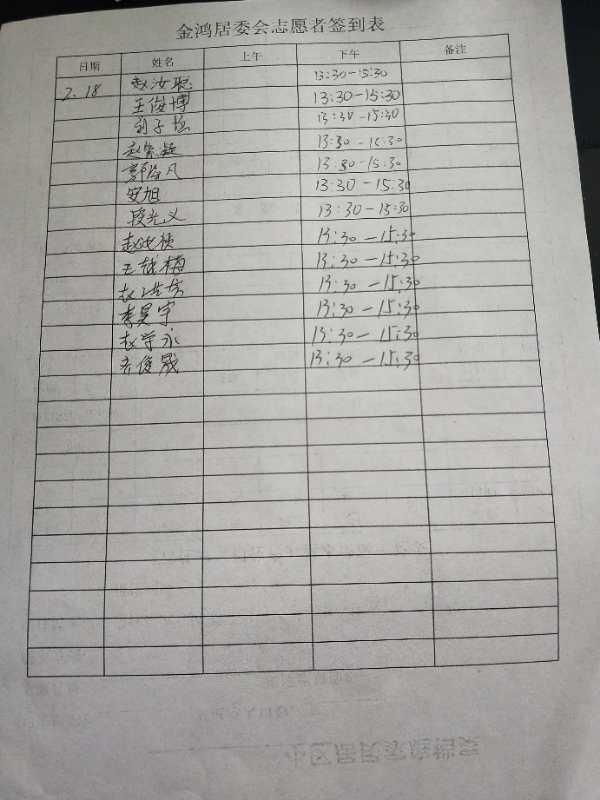 金鸿居委会志愿者签到表
日期 姓名 上午 下午 备注
2.18 赵汝聪 13:30-15:30
王俊博 13:30-15:30
刘子 13:30-15:30
赵 13:30-15:30
郭 凡 13:30-15:30
安旭 13:30-15:30
段光义 13:30-15:30
赵 13:30-15:30
王 梅 13:30-15:30
赵 13:30-15:30
李昊宇 13:30-15:30
赵学永 13:30-15:30
齐俊晟 13:30-15:30
小区居民家庭档案